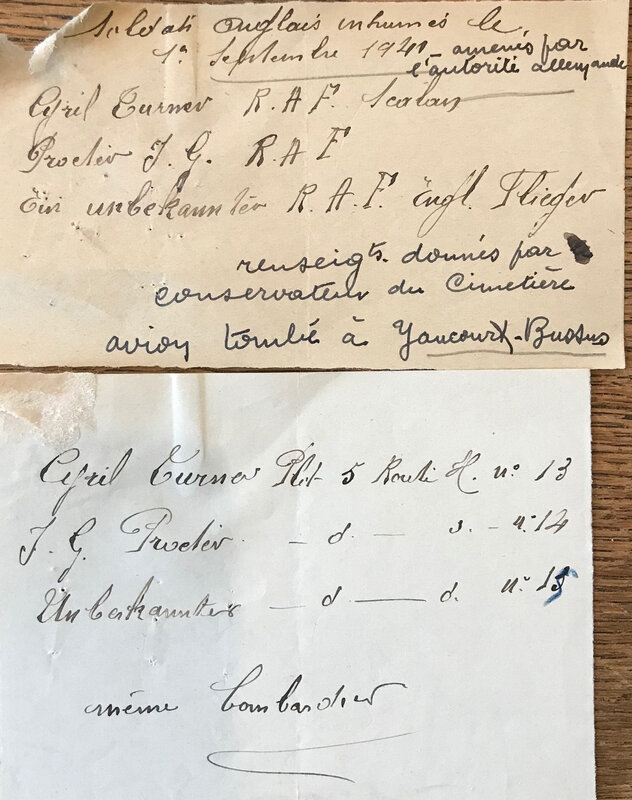 Soldats anglais inhumés le
1er Septembre 1941 - amenés par
l'autorité allemande
Cyril Turner R.A.F.
Procter J. G. R.A.F
Ein unbekannter R.A.F. Engl. Flieger
renseigts. donnés par
conservateur du Cimetière
avion tombé à Yaucourt-Bussus
Cyril Turner Plot 5 H. n° 13
J. G. Procter - d. - d. - n° 14
Unbekannter - d - d. n° 15
même bombardier